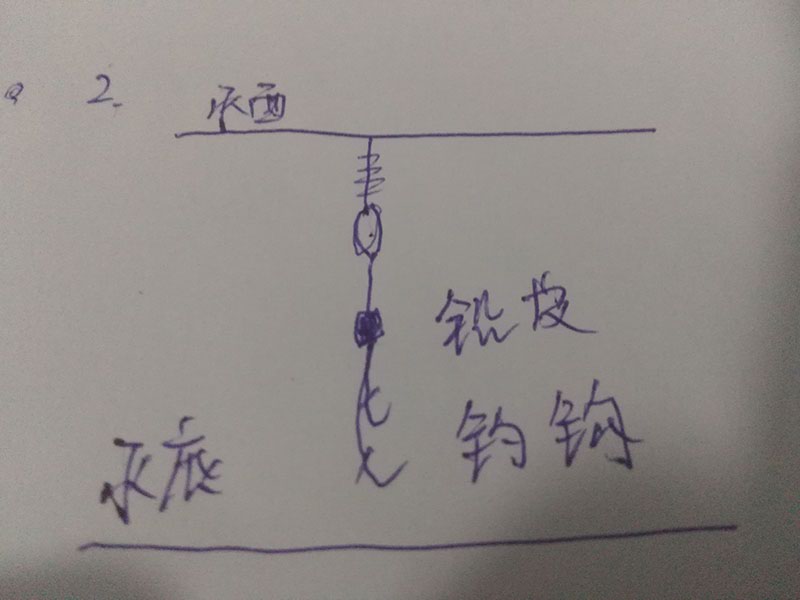 2. 水面
铅皮
钓钩
水底